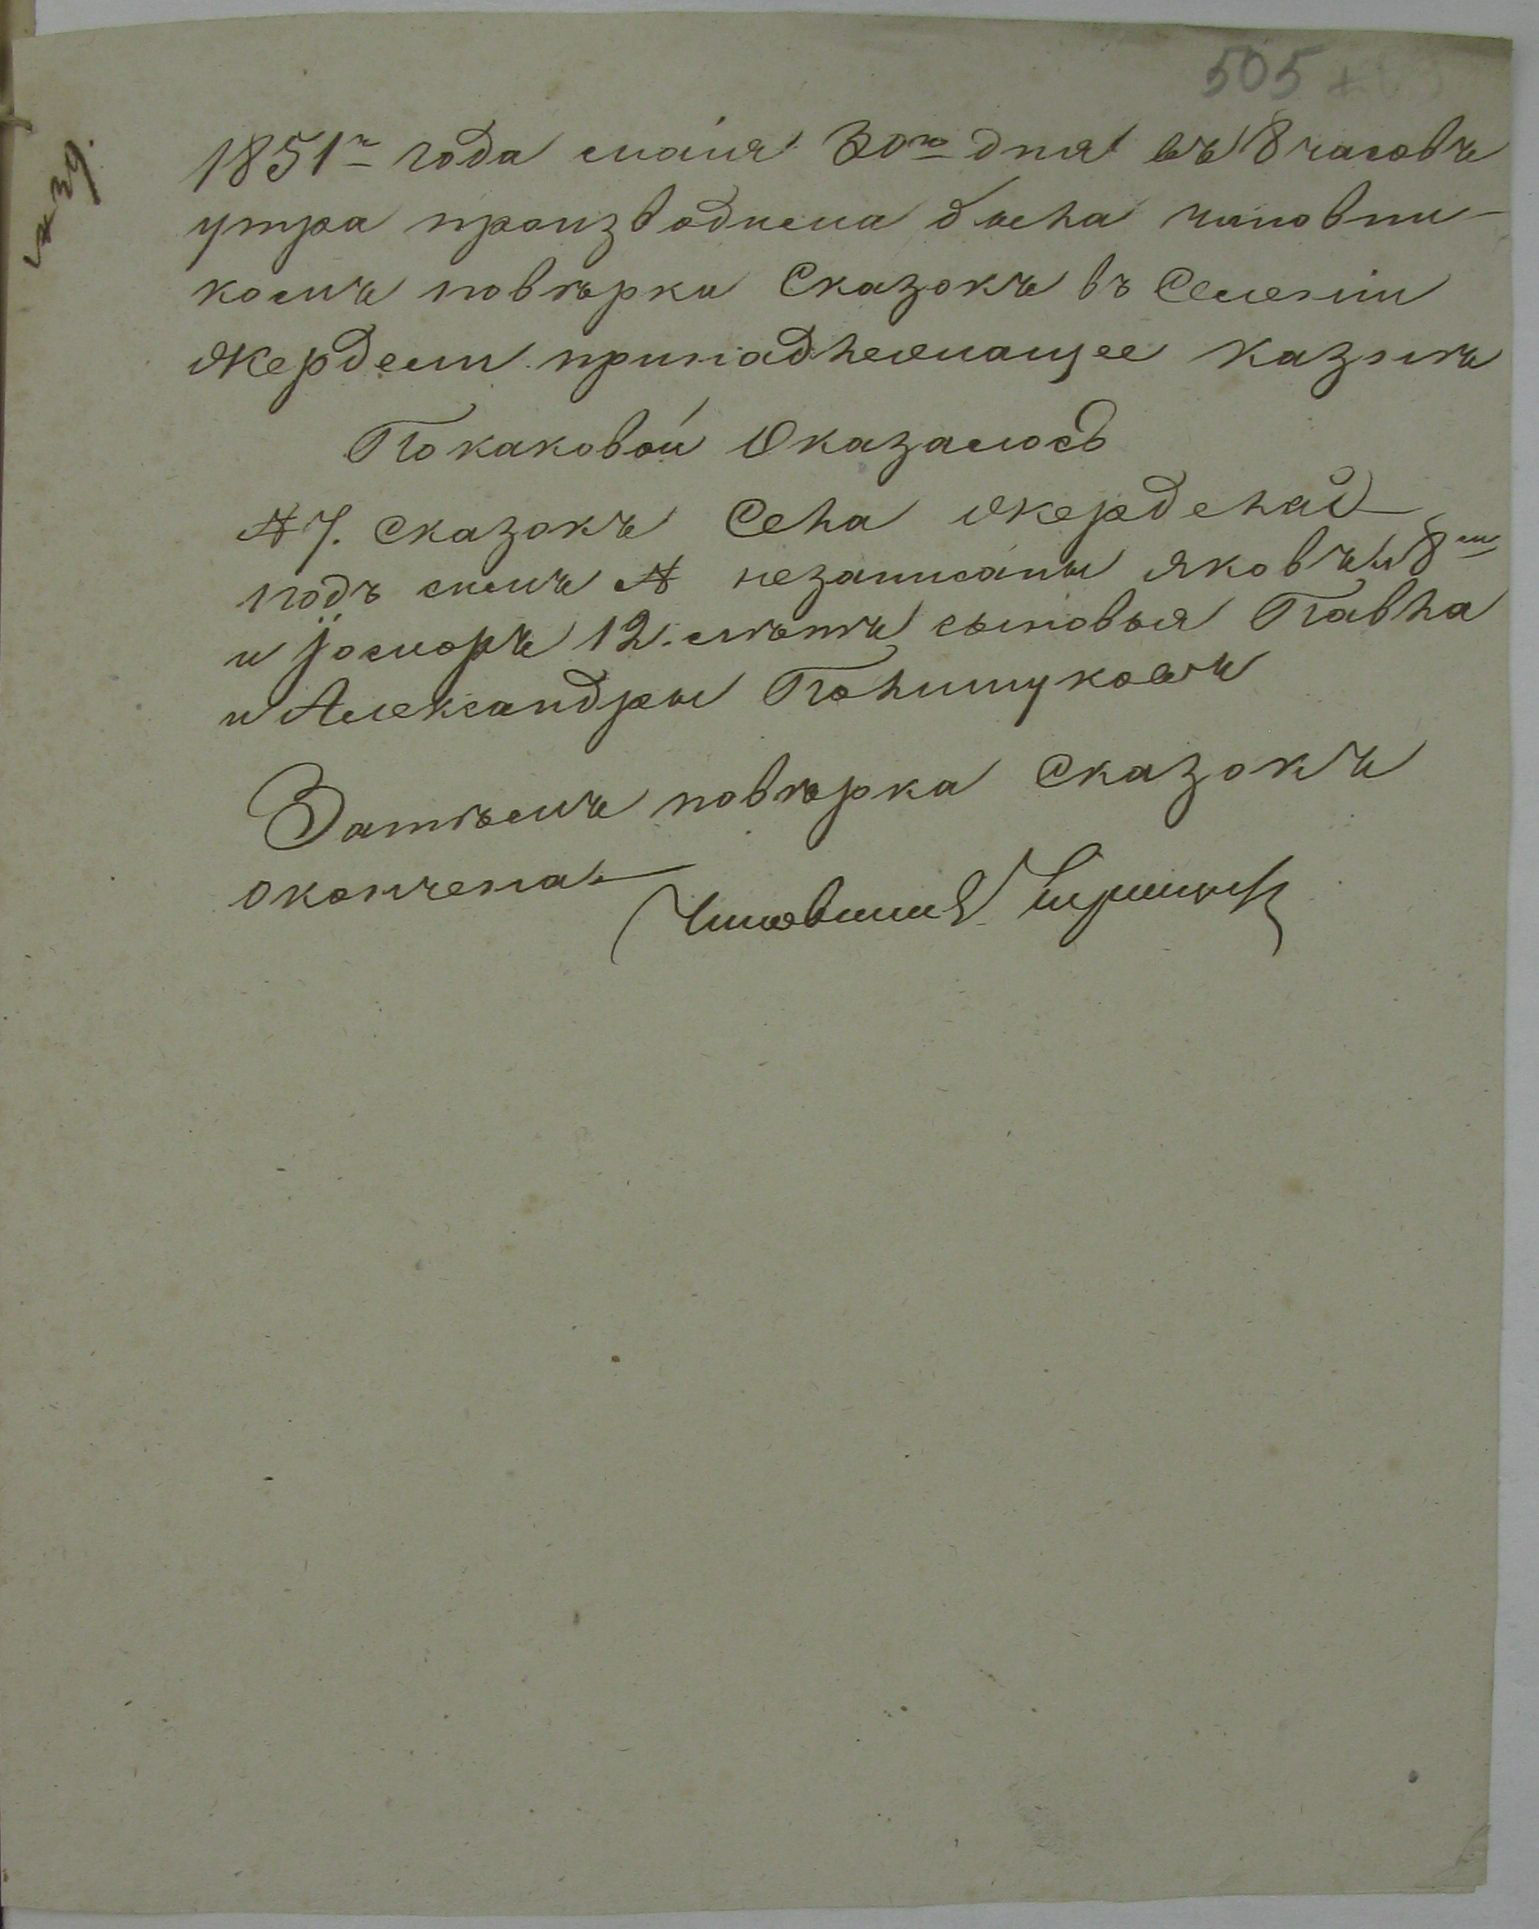 505
№ 39.
1851го года маія 30го дня въ 8 часовъ
утра производима была чиновни-
комъ повѣрки Сказокъ въ Селеніи
Жердели принадлежащее казнѣ
По каковой Оказалось
№ 7. сказокъ Села Жердела
подъ симъ № незаписаны Яковъ 8ми
и 12. лѣтъ сыновья Павла
и Александры Полищуковъ
Затѣмъ повѣрка Сказокъ
окончена
Чиновникъ